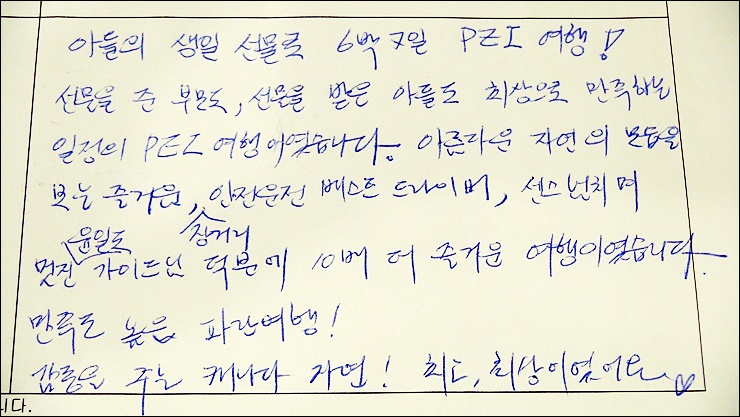 아들의 생일 선물로 6박 7일 PEI 여행!
선물을 준 부모도, 선물을 받은 아들도 최상으로 만족하는
일정의 PEI 여행이였습니다. 아름다운 자연의 모습을
보는 즐거움, 안전운전 베스트 드라이버, 센스넘치며
윤일도 장거리
멋진 가이드님 덕분에 10배 더 즐거운 여행이였습니다.
만족도 높음 파란여행!
감동을 주는 캐나다 자연! 최고, 최상이였어요
니다.